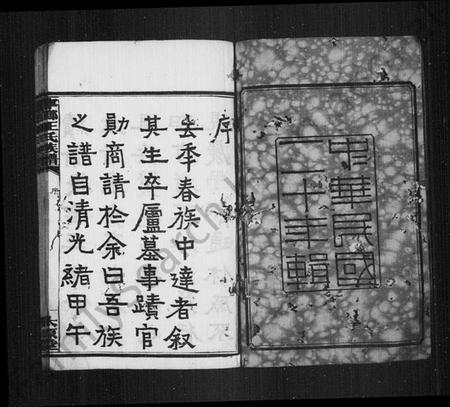 中華民國
二十年輯
序
去年春族中達者叙
其生卒廬墓事蹟官
勛商請於余曰吾族
之譜自清光緒甲午
王氏族譜
序